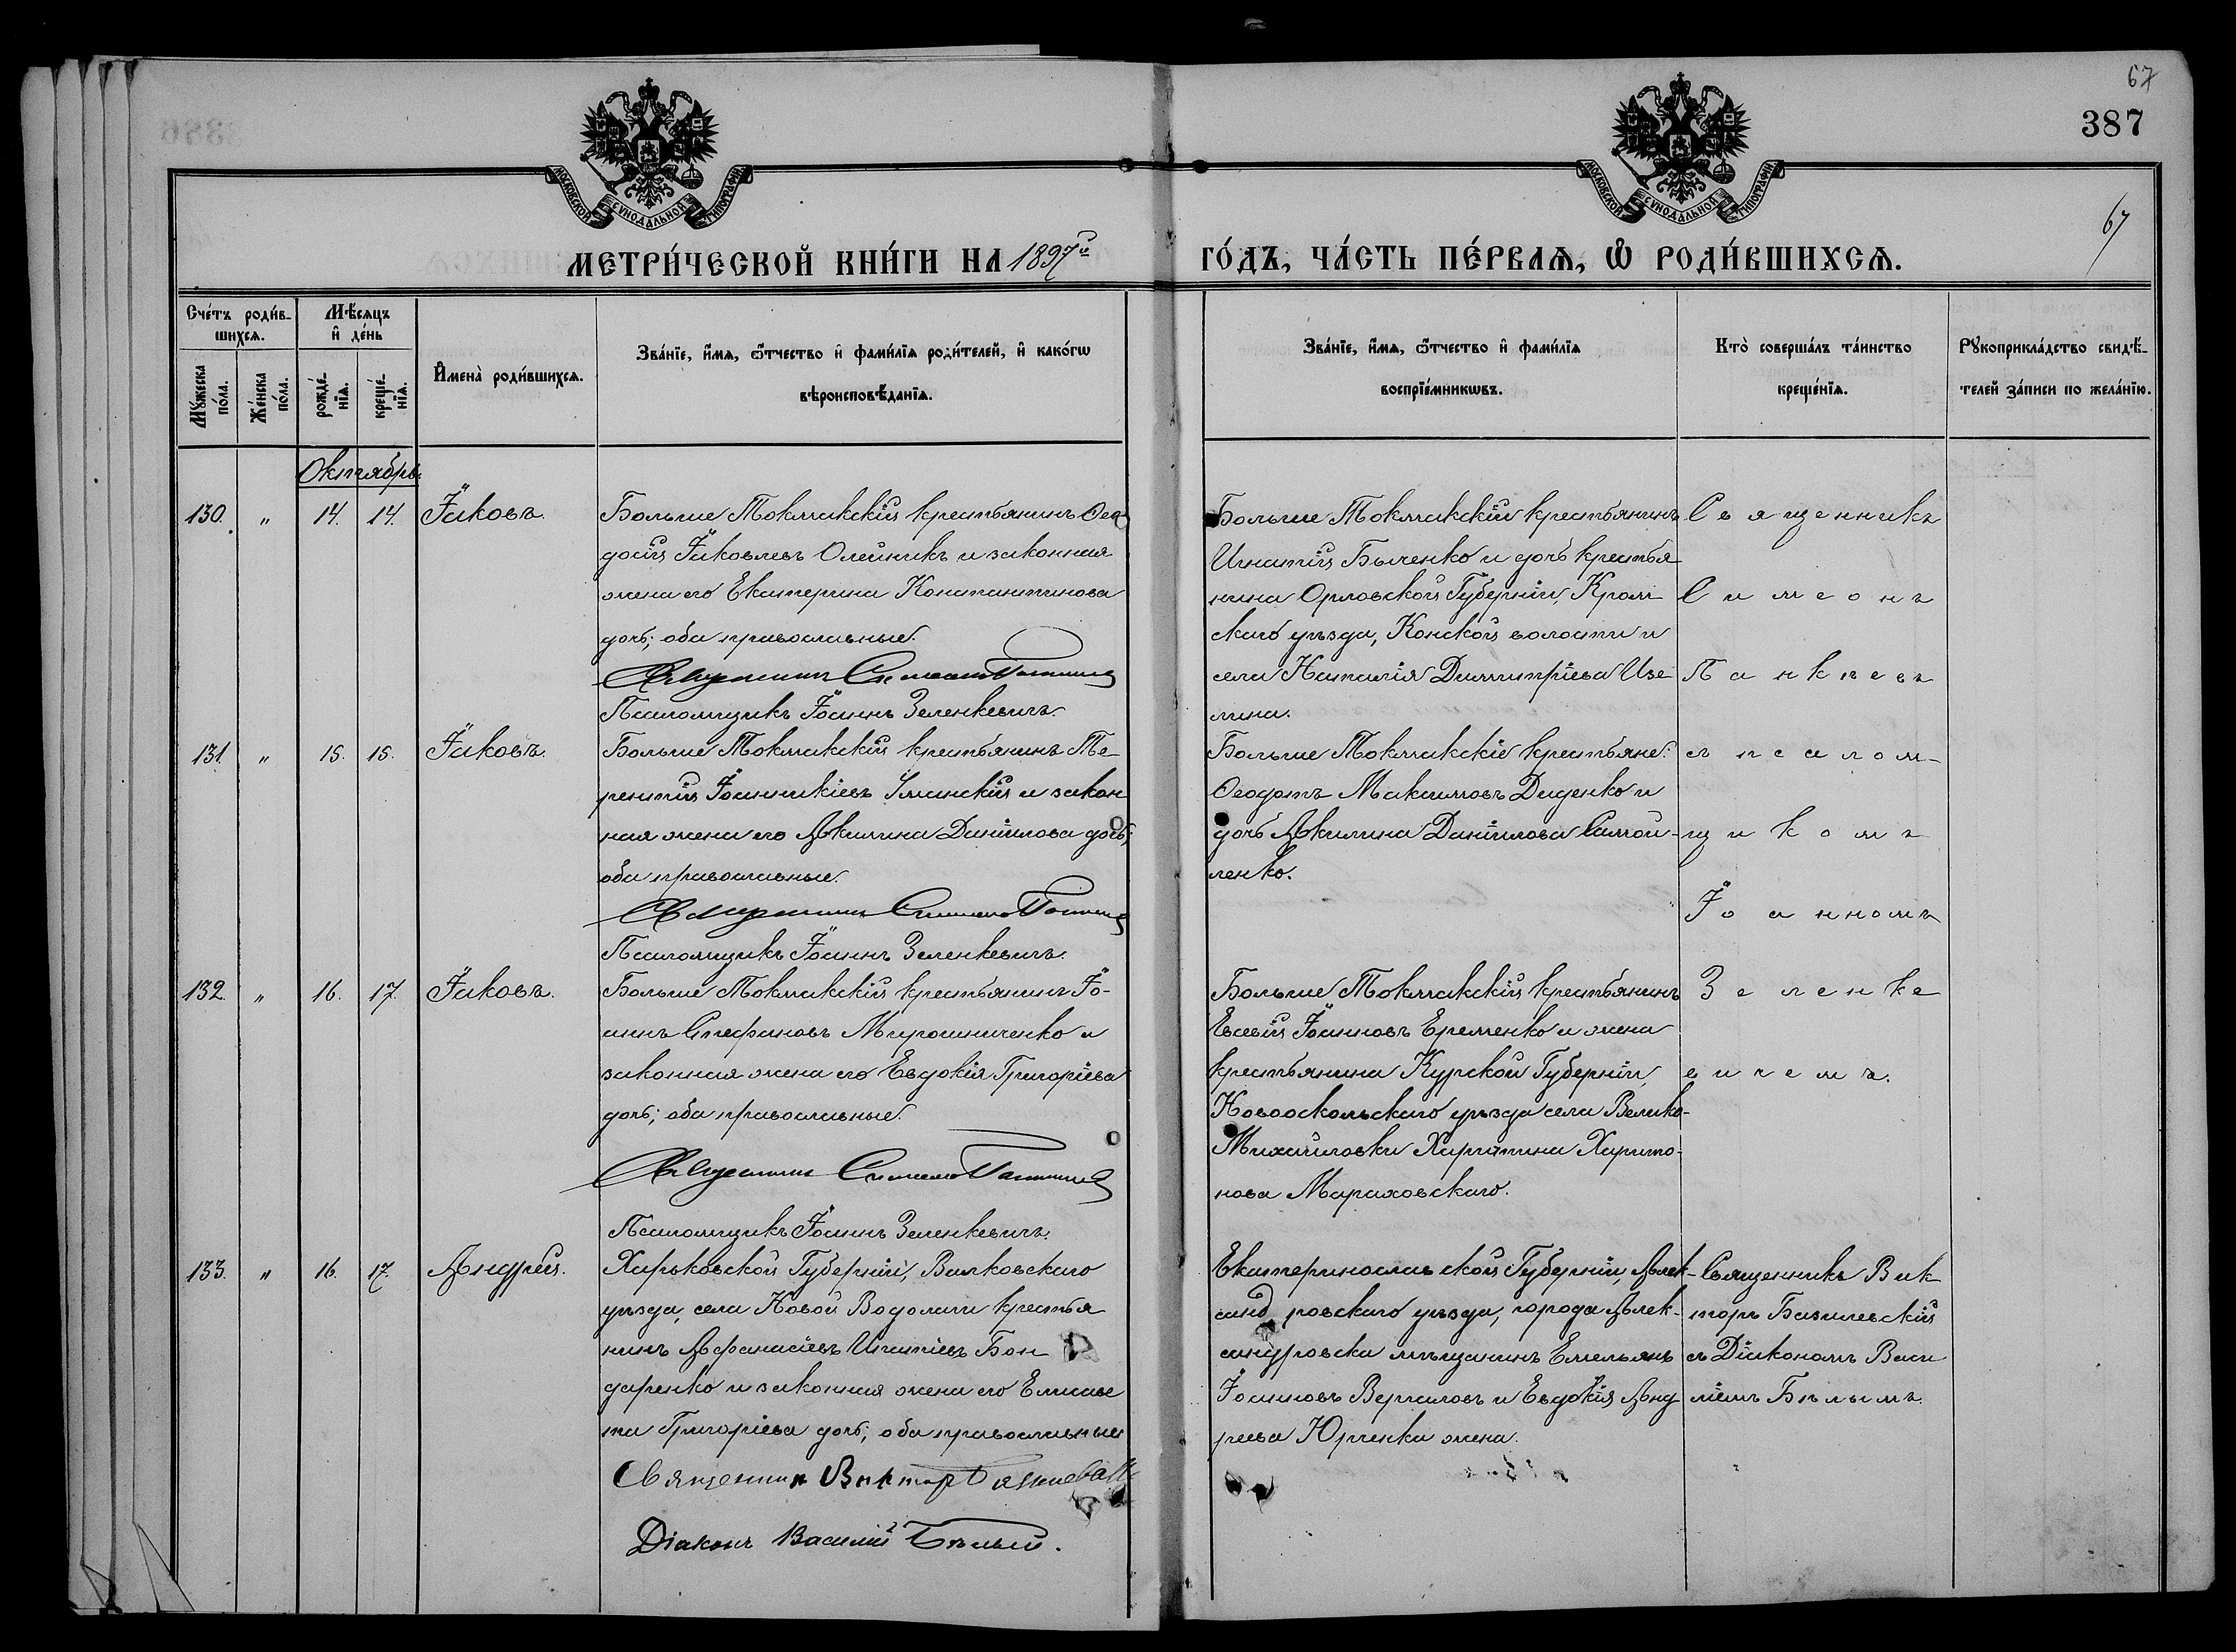 67
387
67
МОСКОВСКОЙ СѴНОДАЛЬНОЙ ТИПОГРАФІИ
МОСКОВСКОЙ СѴНОДАЛЬНОЙ ТИПОГРАФІИ
МЕТРИ́ЧЕСКОЙ КНИ́ГИ НА 1897й ГО́ДЪ, ЧА́СТЬ ПЕ́РВАѦ, Ѡ РОДИ́ВШИХСѦ.
Сче́тъ роди́в-
шихсѧ.
Мꙋ́жеска по́ла.
Же́нска по́ла.
Мѣ́сѧцъ
и҆ де́нь
рожде́-нїѧ.
креще́-нїѧ.
И҆мена̀ роди́вшихсѧ.
Зва́нїе, и҆́мѧ, ѻ҆́тчество и҆ фами́лїѧ роди́телей, и҆ како́гѡ
вѣроисповѣ́данїѧ.
Зва́нїе, и҆́мѧ, ѻ҆́тчество и҆ фами́лїѧ
воспрїе́мникѡвъ.
Кто̀ соверша́лъ та́инство
креще́нїѧ.
Рꙋкоприкла́дство свидѣ́-
телей за́писи по жела́нїю.
Октябрь.
130. " 14. 14. Іаковъ.
Больше Токмакскій крестьянинъ Ѳео-
досій Іаковлевъ Олейникъ и законная
жена его Екатерина Константинова
дочь; оба православные.
Псаломщикъ Іоаннъ Зеленкевичъ.
Больше Токмакскій крестьянинъ
Игнатій Быченко и дочь крестья
нина Орловской Губерніи, Кром
скаго уѣзда, Конской волости и
села Наталія Димитріева Изе
мина.
Священникъ
Симеонъ
Панкѣевъ
131. " 15. 15. Іаковъ.
Больше Токмакскій крестьянинъ Те-
рентій Іоанникіевъ Уманскій и закон
ная жена его Акилина Даніилова дочь;
оба православные.
Псаломщикъ Іоаннъ Зеленкевичъ.
Больше Токмакскіе крестьяне:
Ѳеодотъ Максимовъ Диденко и
дочь Акилина Даніилова Самой-
ленко.
съ псалом-
щикомъ
Іоанномъ
132. " 16. 17. Іаковъ.
Больше Токмакскій крестьянинъ Іо-
аннъ Стефановъ Мирошниченко и
законная жена его Евдокія Григоріева
дочь; оба православные.
Псаломщикъ Іоаннъ Зеленкевичъ.
Больше Токмакскій крестьянинъ
Евсевій Іоанновъ Еременко и жена
крестьянина Курской Губерніи,
Новооскольскаго уѣзда села Велико-
Михайловки Харитина Харито-
нова Мараховскаго.
Зеленке
вичемъ.
133. " 16. 17. Андрей.
Харьковской Губерніи, Валковскаго
уѣзда, села Новой Водолаги крестья
нинъ Аѳанасіевъ Игнатіевъ Бон
даренко и законная жена его Елисаве
та Григоріева дочь; оба православные
Священник Виктор Базилевскій
Діаконъ Василій Бѣлый.
Екатеринославской Губерніи, Алек-
санд ровскаго уѣзда, города Алек-
сандровска мѣщанинъ Емельянъ
Іоанновъ Верчиловъ и Евдокія Анд
реева Юрченка жена.
Священникъ Вик
торъ Базилевскій
съ Діакономъ Васи
ліемъ Бѣлымъ.